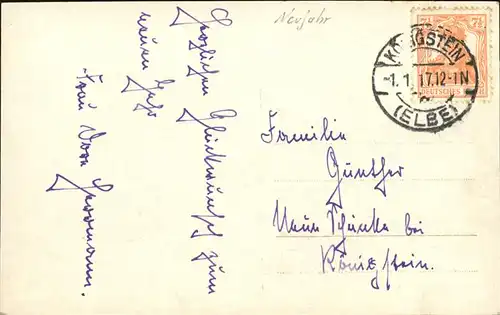 Neujahr
Herzlichen Glückwunsch zum
neuen Jahr
Frau Herrmann.
7½ 7½
DEUTSCHES
KÖNIGSTEIN
1.1.17.12-1N
(ELBE)
Familie
Günther
Neue Schänke bei
Königstein.